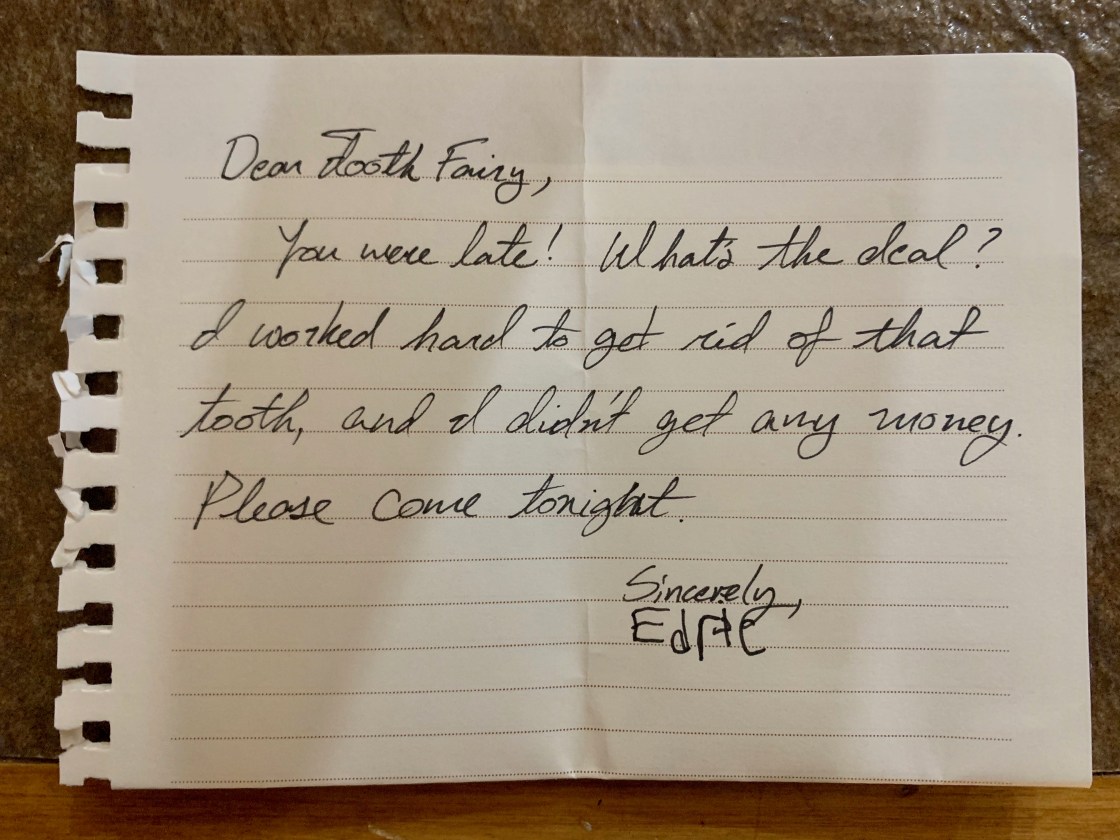 Dear Tooth Fairy,
You were late! What's the deal?
I worked hard to get rid of that
tooth, and I didn't get any money.
Please come tonight.
Sincerely,